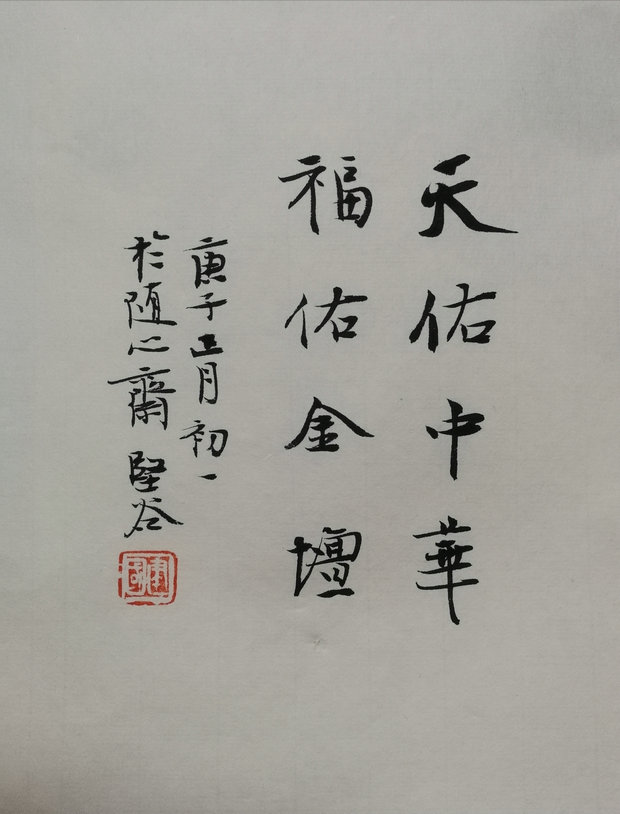 天佑中華
福佑金壇
庚子正月初一
於随心齋 堅谷